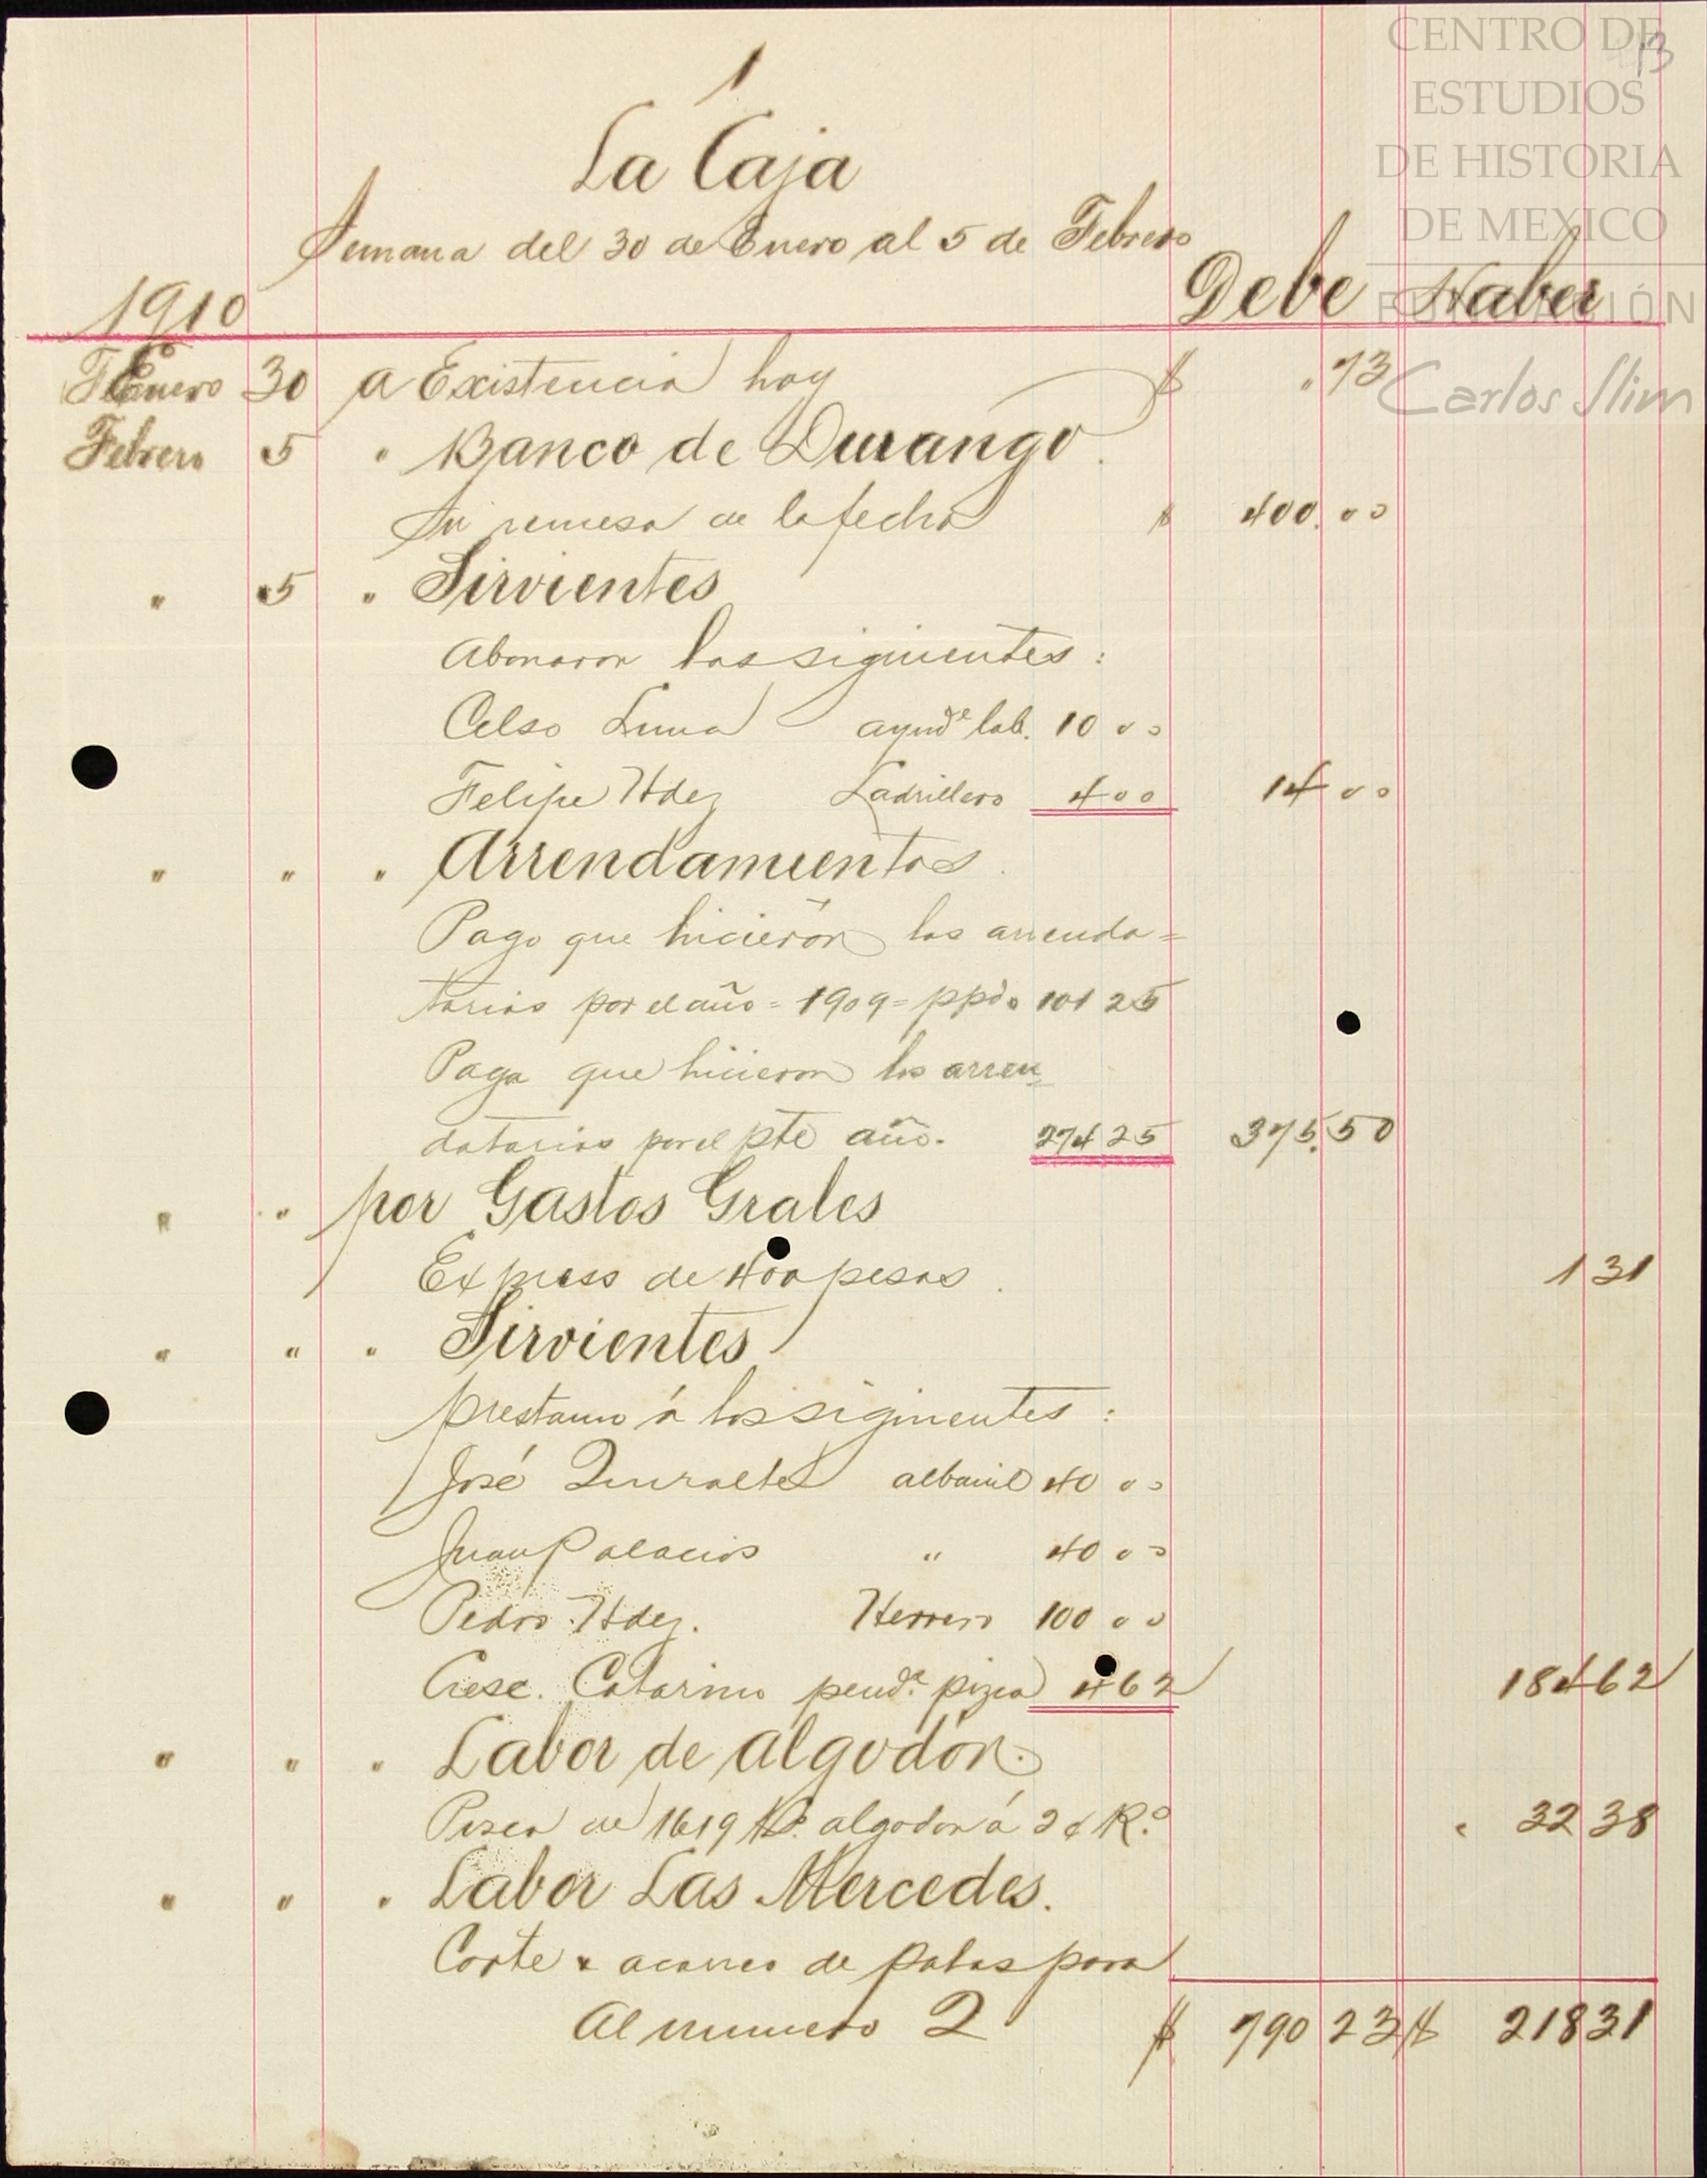 1
13
CENTRO DE
ESTUDIOS
DE HISTORIA
DE MEXICO
FUNDACIÓN
Carlos Slim
La Caja
Semana del 30 de Enero al 5 de Febrero
1910 Debe Haber
Enero 30 a Existencia hoy $ " 73
Febrero 5 " Banco de Durango.
Su remesa de la fecha $ 400.00
" 5 " Sirvientes
Abonaron los siguientes:
Celso Luna ayude lab. 10 00
Felipe Hdez Ladrillero 4 00 14 00
" " " Arrendamientos.
Pago que hicierón los arrenda=
tarios por el año = 1909 = ppdo 101 25
Pago que hicieron los arren
datarios por el pte año. 274 25 375.50
" " por Gastos Grales
Express de 400 pesos. 1 31
" " " Sirvientes
prestamo á los siguientes:
José albañil 40 00
Juan Palacios " 40 00
Pedro Hdez. Herrero 100 00
Cresc. Catarino pendte pizca 4 62 184 62
" " " Labor de algodón.
Pisca de 1619 Ks. algodon á 2 ¢ K.o " 32 38
" " " Labor Las Mercedes.
Corte y acarreo de palos para
Al numero 2 $ 790 23 $ 218 31